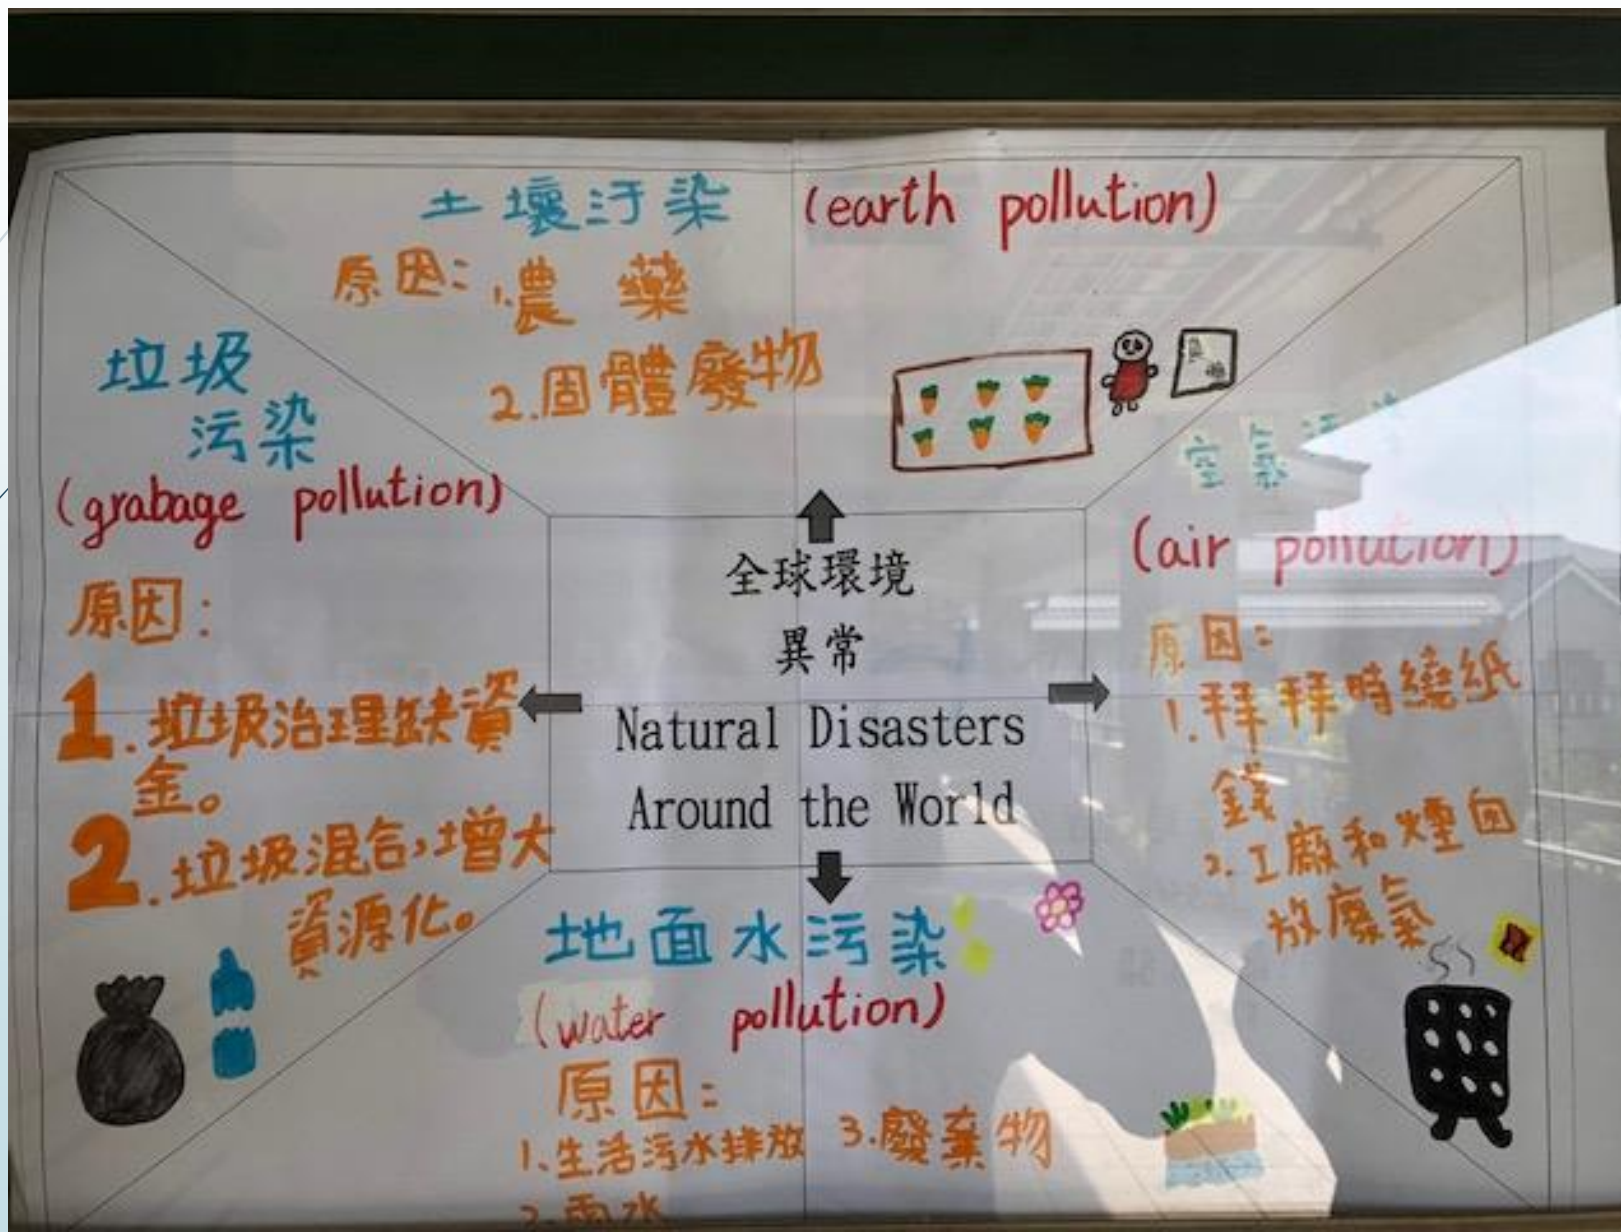 土壤汙染 (earth pollution)
原因：1.濃藥
2.固體廢物
垃圾
污染
(grabage pollution)
原因：
1.垃圾治理缺資
金。
2.垃圾混合，增大
資源化。
全球環境
異常
Natural Disasters
Around the World
空氣汙染
(air pollution)
原因：
1.拜拜時繞紙
錢
2.工廠和煙囪
放廢氣
地面水污染
(water pollution)
原因：
1、生活污水排放
2.雨水
3.廢棄物